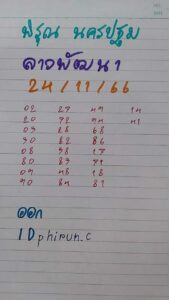 พิรุณ นครปฐม
ลาวพัฒนา
24/11/66
02 27 14
20 72 41
03 28 68
30 82 86
08 38 17
80 83 71
09 78 18
90 87 81
ออก
IDphirun_c